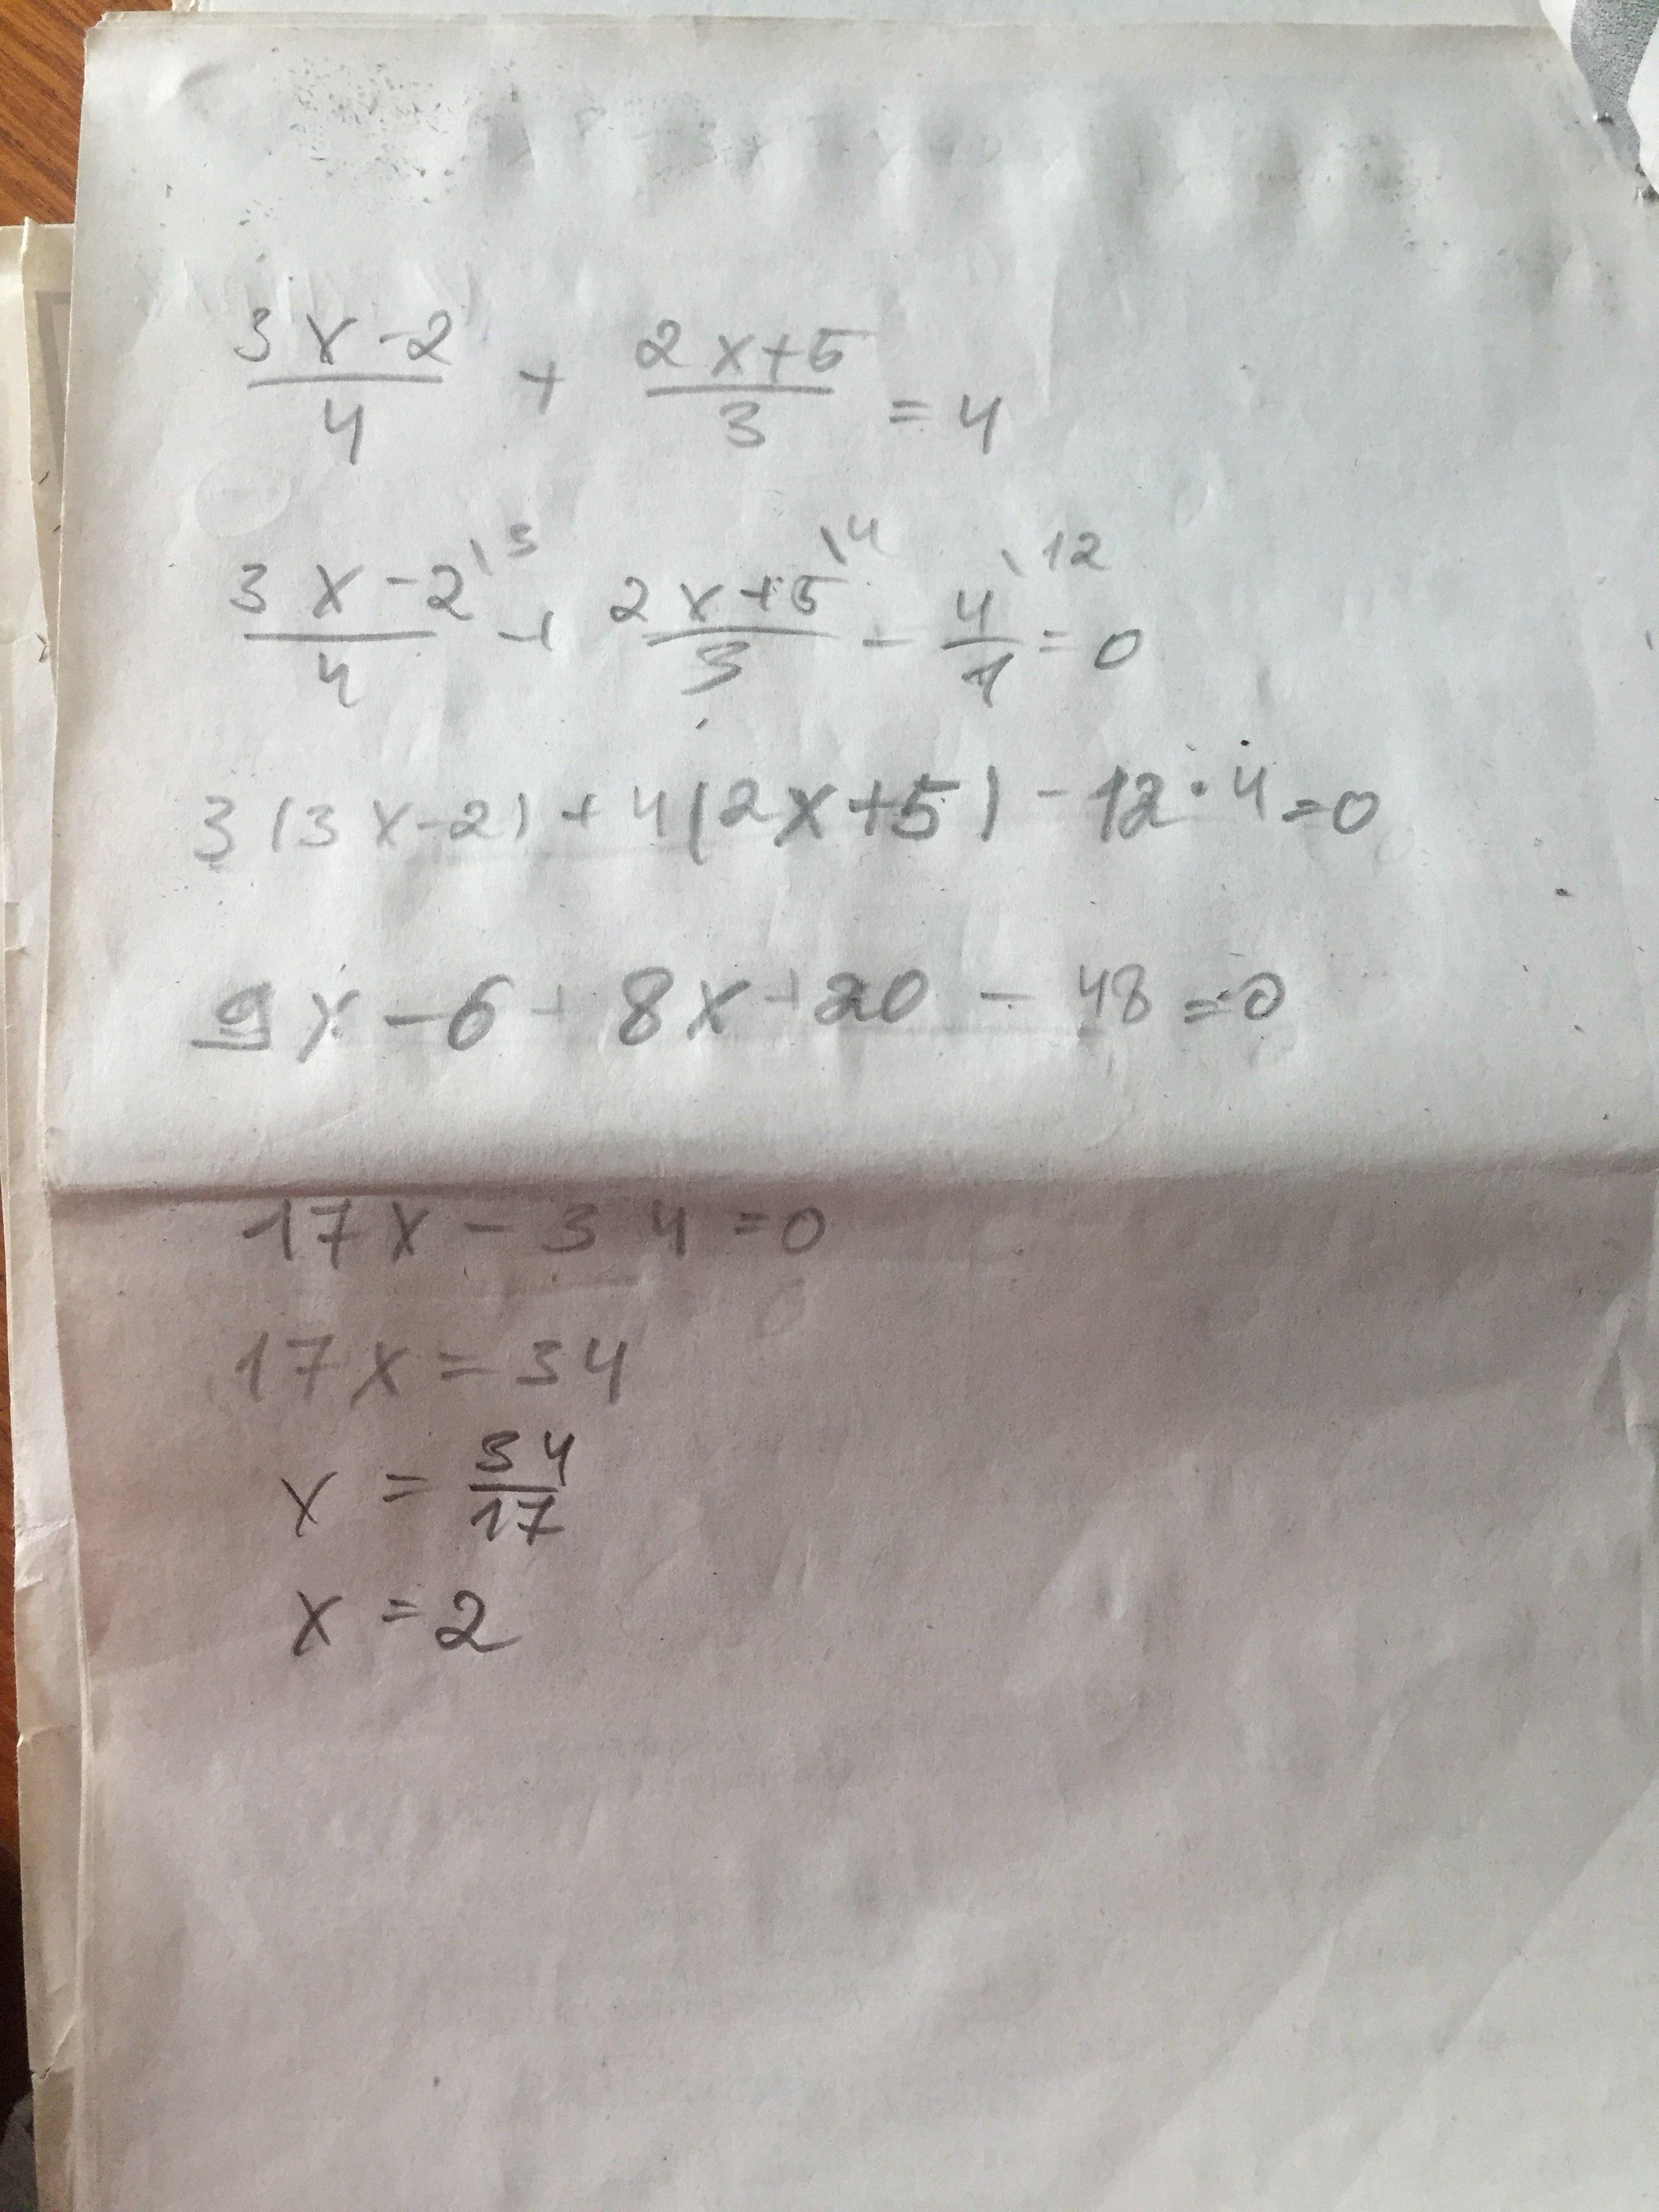 (3x-2)/4 + (2x+5)/3 = 4
(3x-2)/4 \3 + (2x+5)/3 \4 - 4/1 \12 = 0
3(3x-2)+4(2x+5)-12·4=0
9x-6+8x+20-48=0
17x-34=0
17x=34
x=34/17
x=2